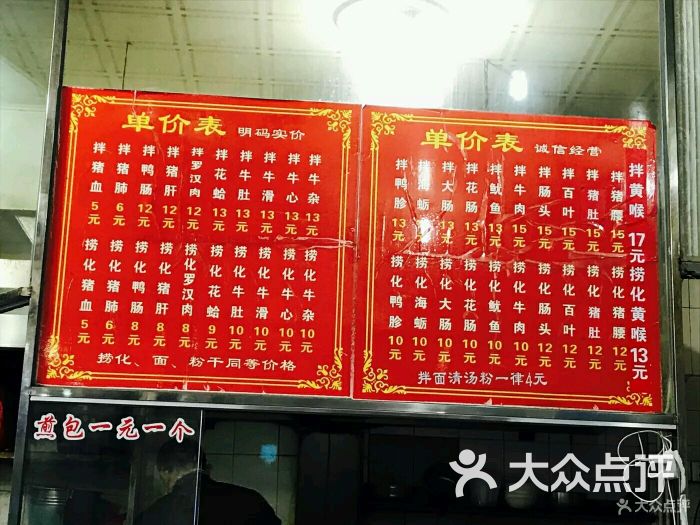 单价表 明码实价
拌猪血 5元
拌猪肺 6元
拌鸭肠 12元
拌猪肝 12元
拌罗汉肉 12元
拌花蛤 13元
拌牛肚 13元
拌牛滑 13元
拌牛心 13元
拌牛杂 13元
捞化猪血 5元
捞化猪肺 6元
捞化鸭肠 8元
捞化猪肝 8元
捞化罗汉肉 8元
捞化花蛤 9元
捞化牛肚 10元
捞化牛滑 10元
捞化牛心 10元
捞化牛杂 10元
捞化、面、粉干同等价格
单价表 诚信经营
拌鸭胗 13元
拌海蛎 13元
拌大肠 13元
拌花肠 13元
拌鱿鱼 13元
拌牛肉 15元
拌肠头 15元
拌百叶 15元
拌猪肚 15元
拌猪腰 15元
拌黄喉 17元
捞化鸭胗 10元
捞化海蛎 10元
捞化大肠 10元
捞化花肠 10元
捞化鱿鱼 10元
捞化牛肉 10元
捞化肠头 10元
捞化百叶 10元
捞化猪肚 12元
捞化猪腰 12元
捞化黄喉 13元
拌面清汤粉一律4元
煎包一元一个
大众点评
大众点评